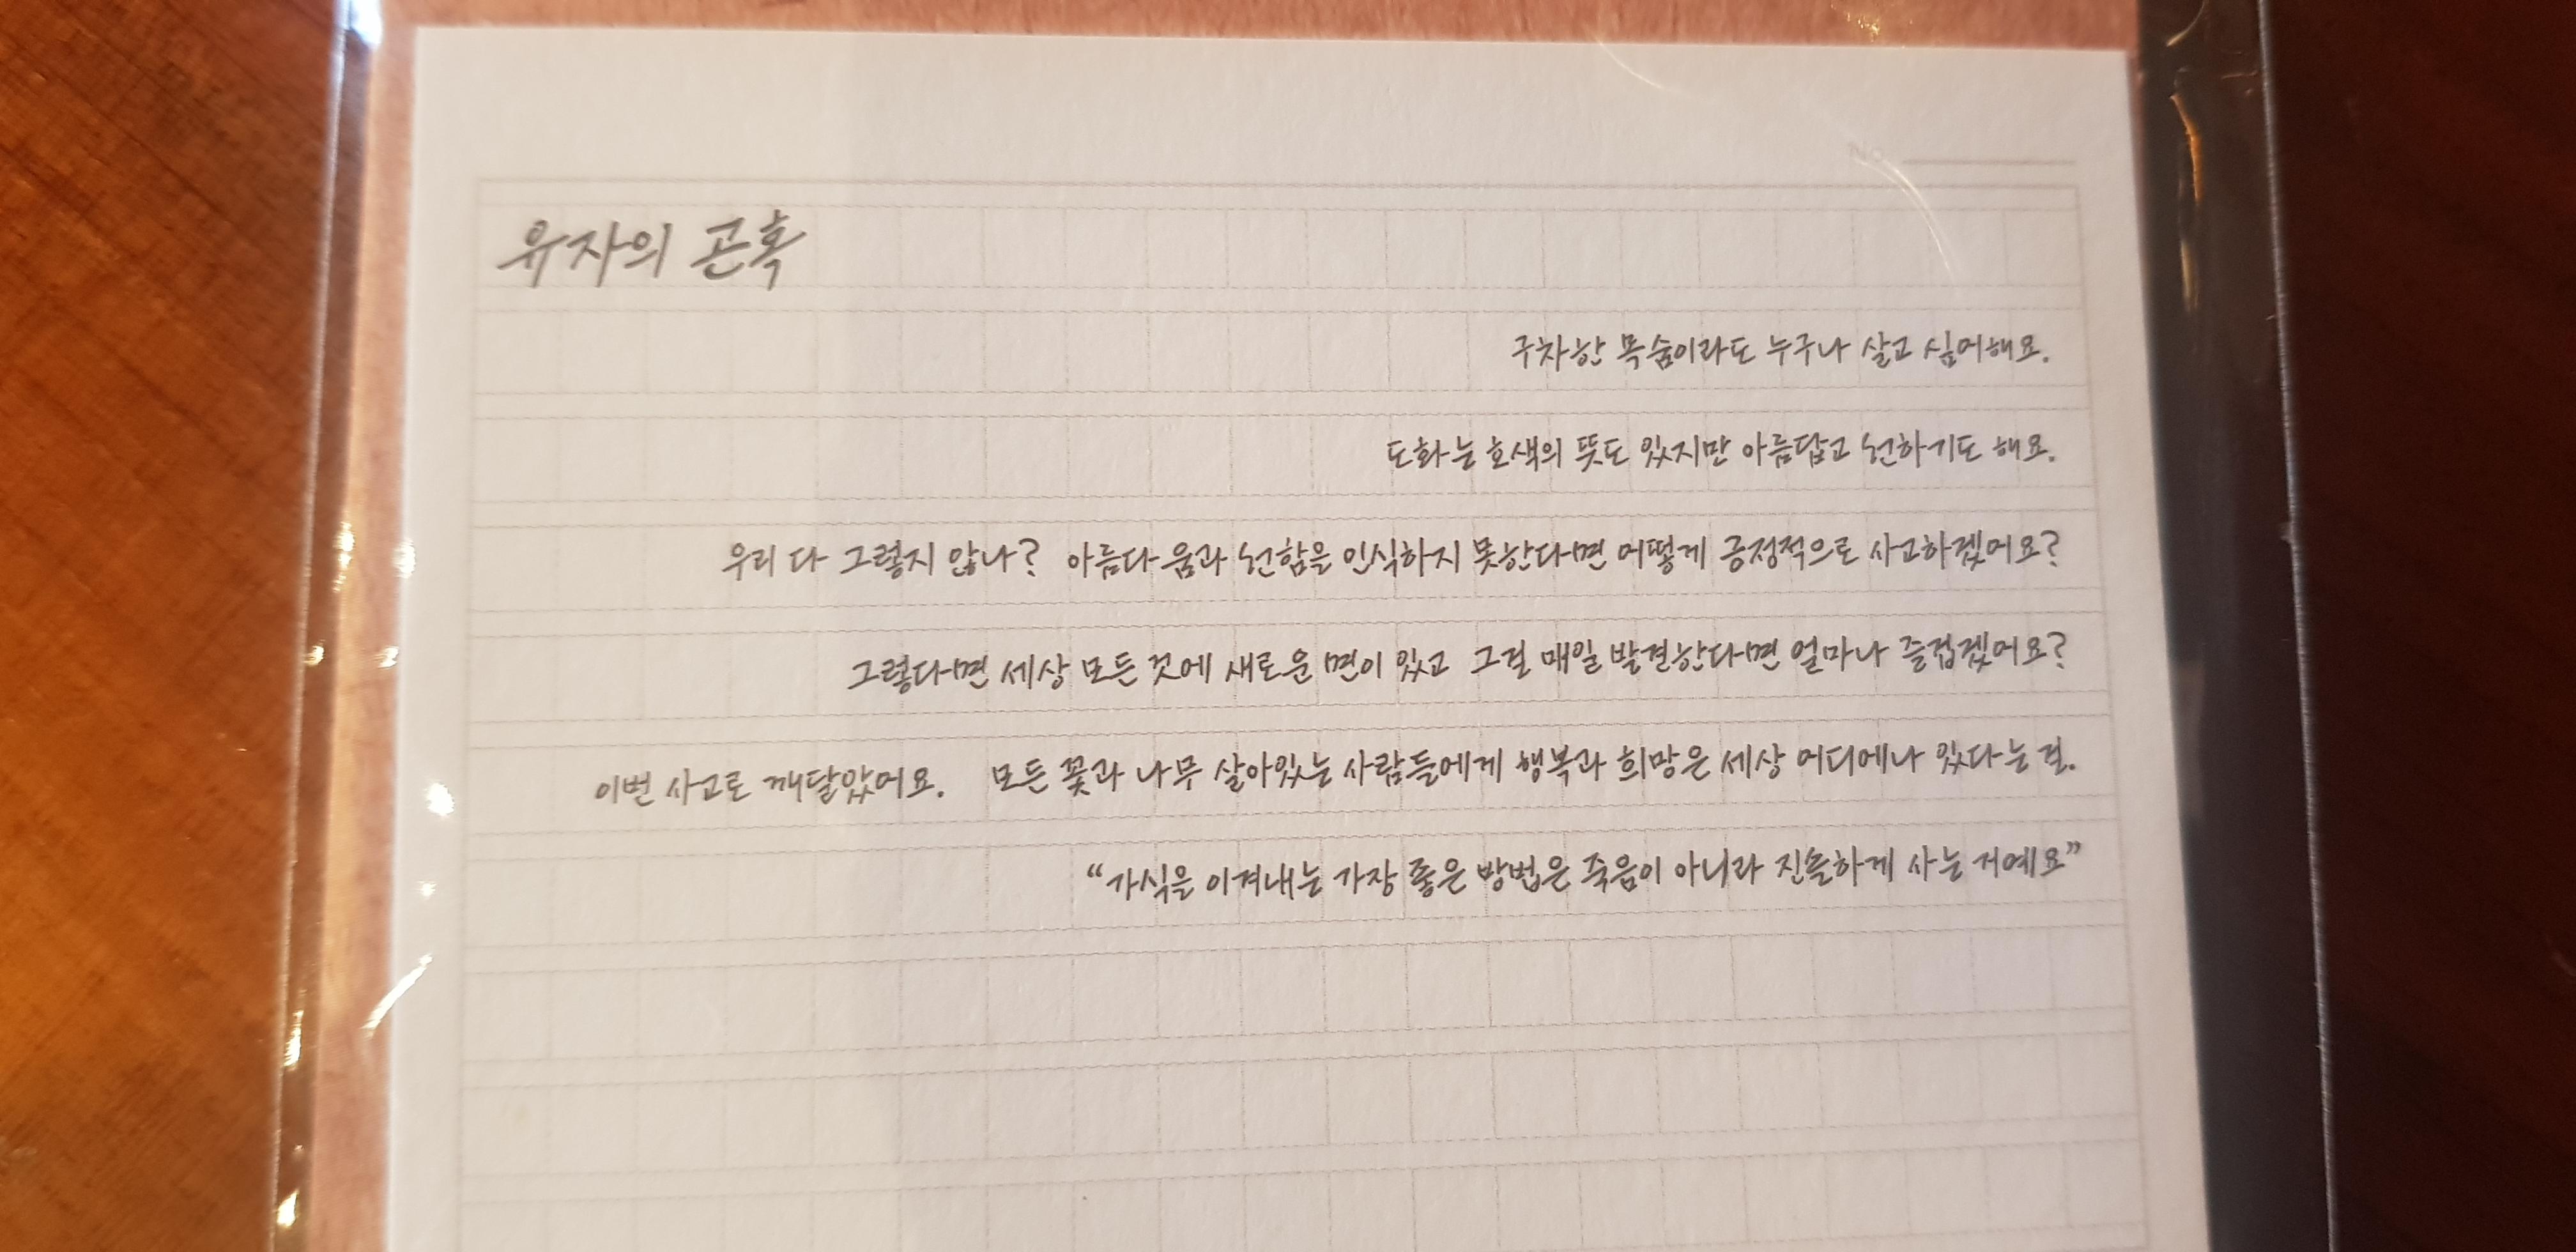 유자의 곤혹
구차한 목숨이라도 누구나 살고 싶어해요.
도화는 호색의 뜻도 있지만 아름답고 선하기도 해요.
우리 다 그렇지 않나? 아름다움과 선함을 인식하지 못한다면 어떻게 긍정적으로 사고하겠어요?
그렇다면 세상 모든 것에 새로운 면이 있고 그걸 매일 발견한다면 얼마나 즐겁겠어요?
이번 사고로 깨달았어요. 모든 꽃과 나무 살아있는 사람들에게 행복과 희망은 세상 어디에나 있다는 걸.
“가식을 이겨내는 가장 좋은 방법은 죽음이 아니라 진솔하게 사는 거예요”